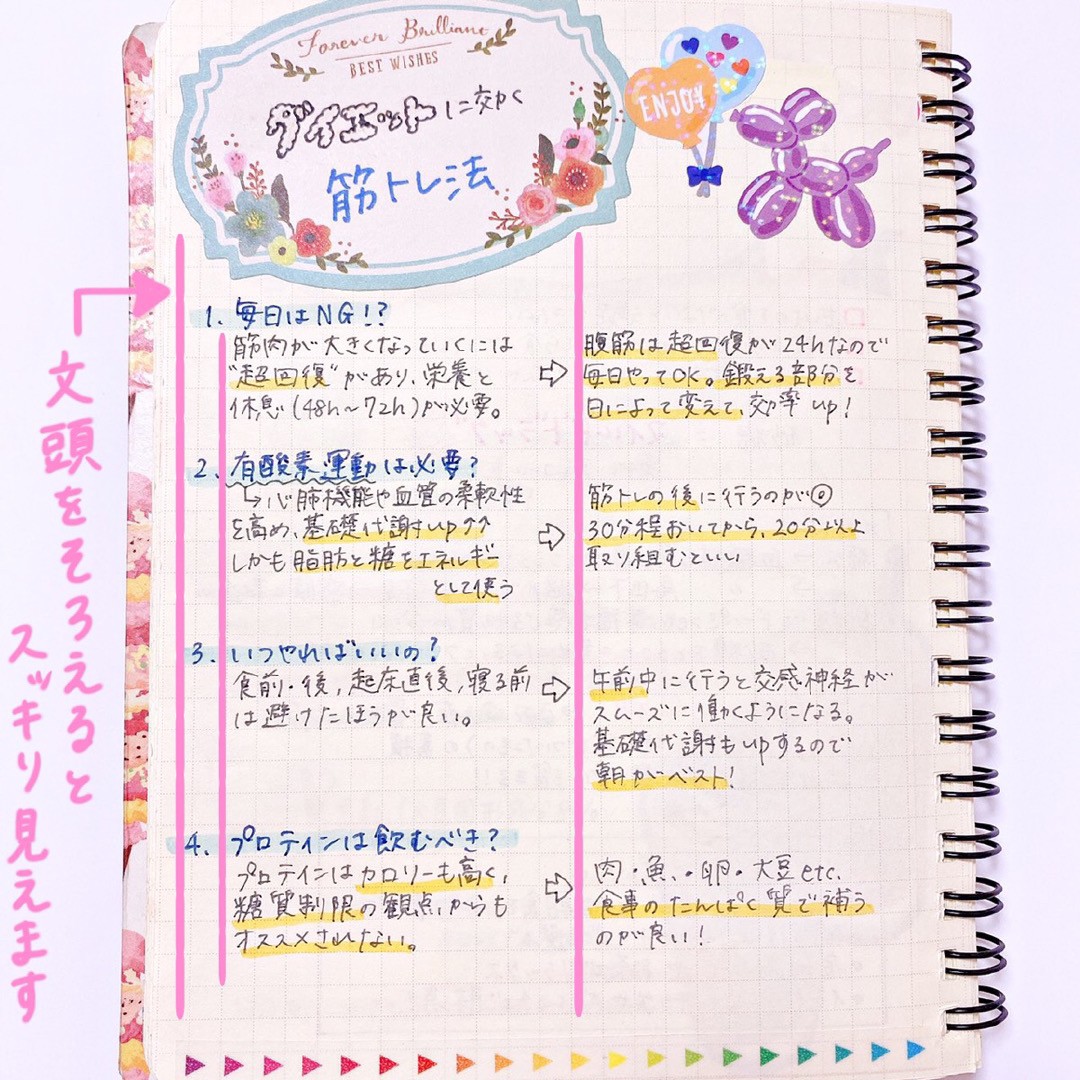 Forever Brilliant
BEST WISHES
ダイエットに効く
筋トレ法
ENJOY
文頭をそろえると
スッキリ見えます
1. 毎日はNG!?
筋肉が大きくなっていくには
"超回復"があり、栄養と
休息(48h〜72h)が必要。
⇨
腹筋は超回復が24hなので
毎日やってOK。鍛える部分を
日によって変えて、効率up!
2. 有酸素運動は必要?
↳心肺機能や血管の柔軟性
を高め、基礎代謝up↑↑
しかも脂肪と糖をエネルギー
として使う
⇨
筋トレの後に行うのが◎
30分程おいてから、20分以上
取り組むといい
3. いつやればいいの?
食前・後,起床直後,寝る前
は避けたほうが良い。
⇨
午前中に行うと交感神経が
スムーズに働くようになる。
基礎代謝もupするので
朝がベスト!
4. プロティンは飲むべき?
プロティンはカロリーも高く、
糖質制限の観点からも
オススメされない。
⇨
肉・魚・卵・大豆etc.
食事のたんぱく質で補う
のが良い!